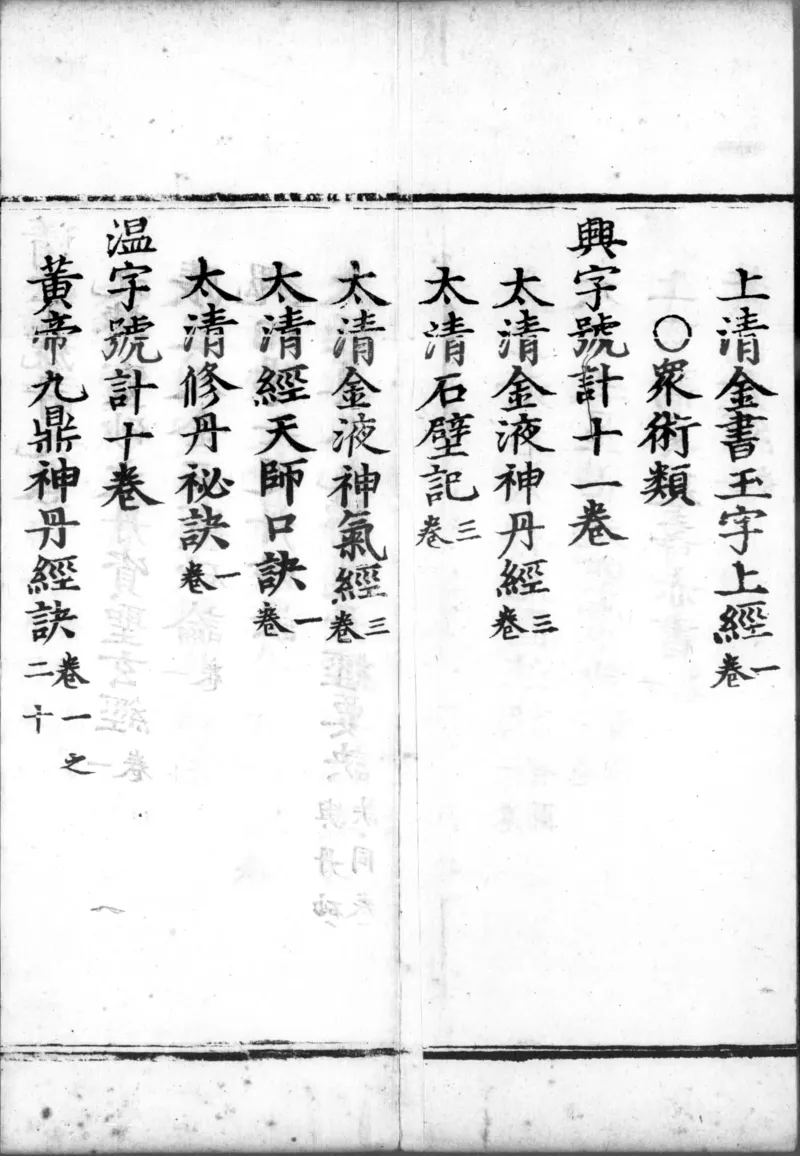 上清金書玉字上經一卷
○衆術類
興字號計十一卷
太清金液神丹經三卷
太清石壁記三卷
太清金液神氣經三卷
太清經天師口訣一卷
太清修丹祕訣一卷
温字號計十卷
黃帝九鼎神丹經訣卷一之二十